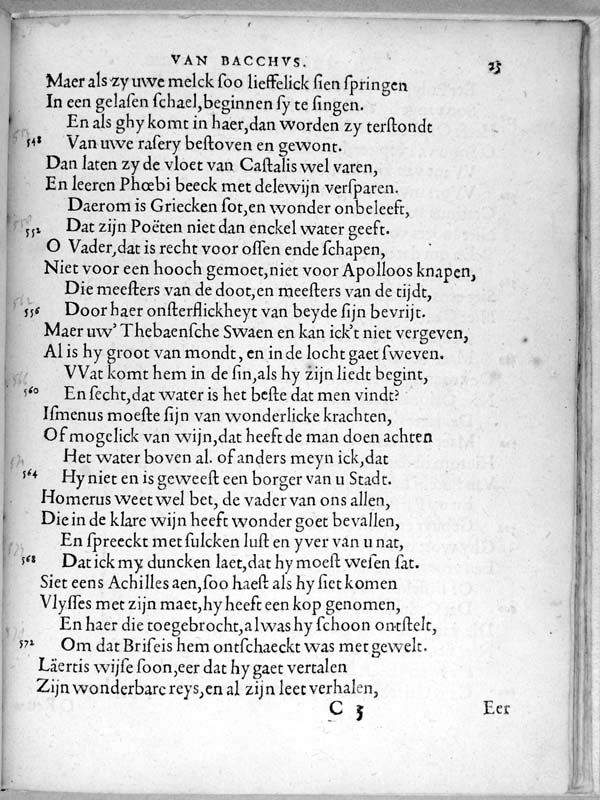 VAN BACCHVS. 23
Maer als zy uwe melck ſoo lieffelick ſien ſpringen
In een gelaſen ſchael, beginnen ſy te ſingen.
En als ghy komt in haer, dan worden zy terſtondt
548 Van uwe raſery beſtoven en gewont.
Dan laten zy de vloet van Caſtalis wel varen,
En leeren Phœbi beeck met delewijn verſparen.
Daerom is Griecken ſot, en wonder onbeleeft,
552 Dat zijn Poëten niet dan enckel water geeft.
O Vader, dat is recht voor oſſen ende ſchapen,
Niet voor een hooch gemoet, niet voor Apolloos knapen,
Die meeſters van de doot, en meeſters van de tijdt,
556 Door haer onſterflickheyt van beyde ſijn bevrijt.
Maer uw' Thebaenſche Swaen en kan ick't niet vergeven,
Al is hy groot van mondt, en in de locht gaet ſweven.
VVat komt hem in de ſin, als hy zijn liedt begint,
560 En ſecht, dat water is het beſte dat men vindt?
Iſmenus moeſte ſijn van wonderlicke krachten,
Of mogelick van wijn, dat heeft de man doen achten
Het water boven al. of anders meyn ick, dat
564 Hy niet en is geweeſt een borger van u Stadt.
Homerus weet wel bet, de vader van ons allen,
Die in de klare wijn heeft wonder goet bevallen,
En ſpreeckt met ſulcken luſt en yver van u nat,
568 Dat ick my duncken laet, dat hy moeſt weſen ſat.
Siet eens Achilles aen, ſoo haeſt als hy ſiet komen
Vlyſſes met zijn maet, hy heeft een kop genomen,
En haer die toegebrocht, al was hy ſchoon ontſtelt,
572 Om dat Briſeis hem ontſchaeckt was met gewelt.
Läertis wijſe ſoon, eer dat hy gaet vertalen
Zijn wonderbare reys, en al zijn leet verhalen,
C 3 Eer